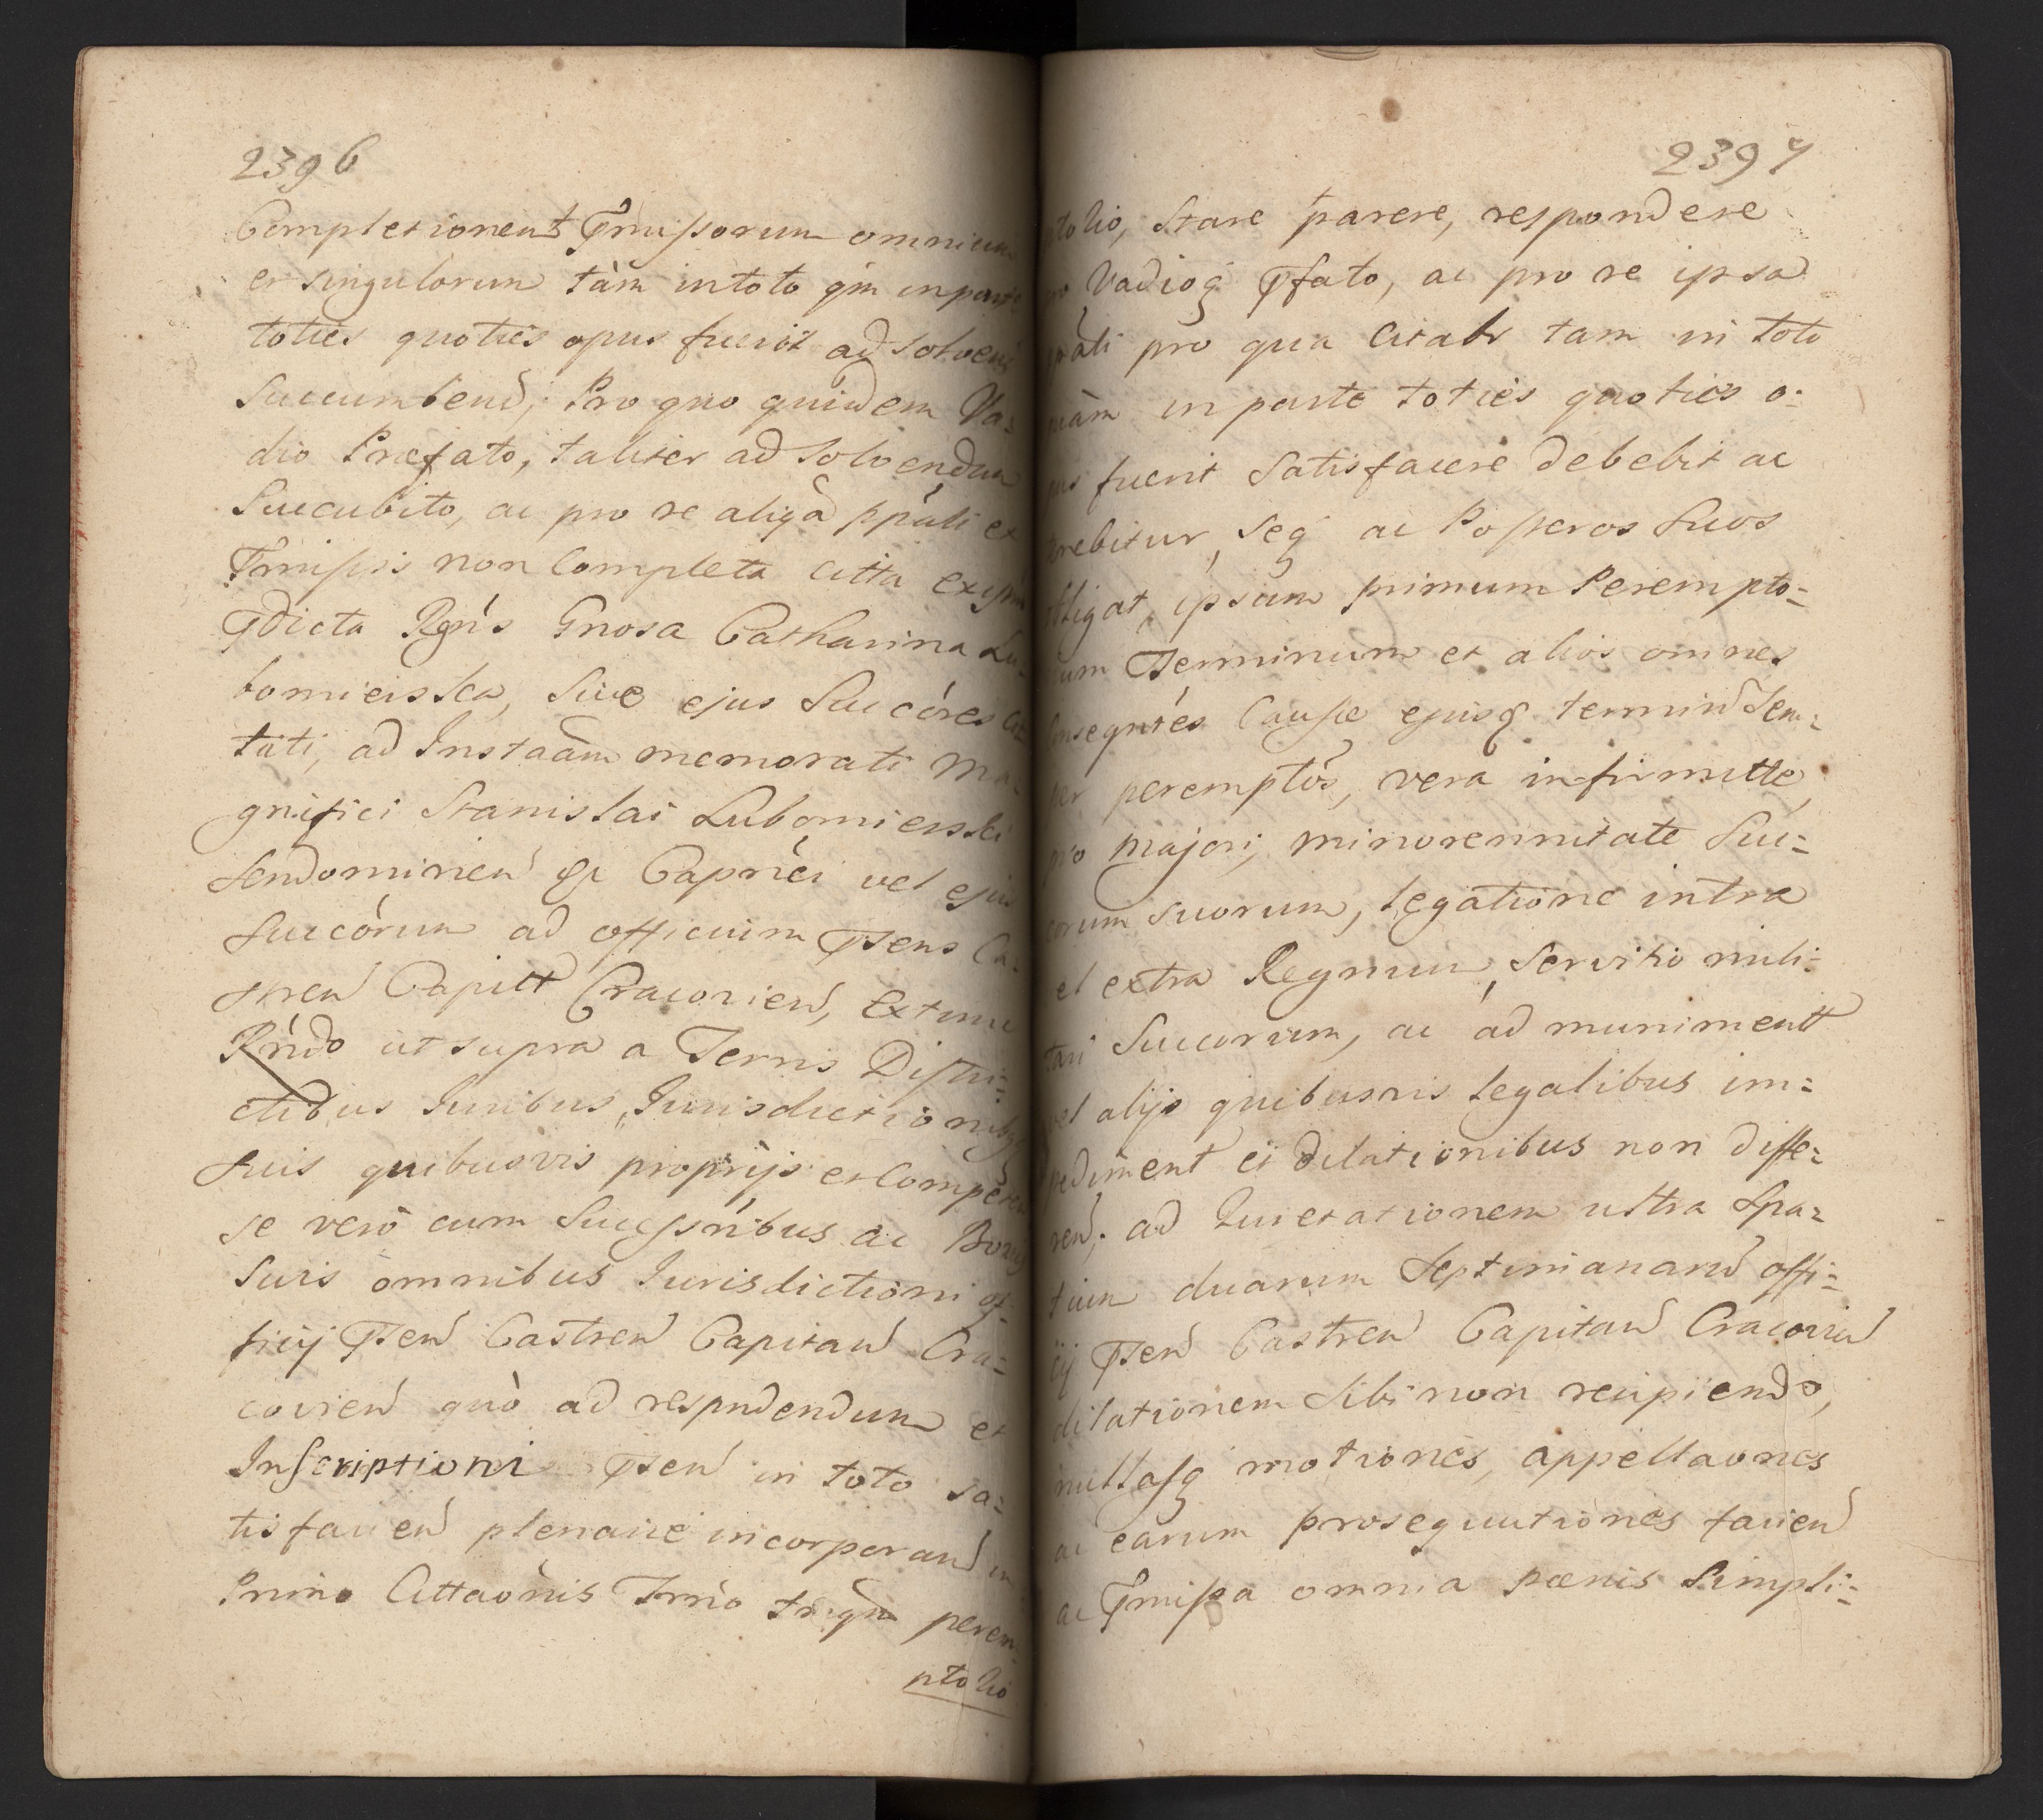 2396
Completionent Pmissorum omnium
et singulorum tàm in toto qm in parte
toties quoties opus fuerit ad solvend
Succumbend; Pro quo quidem Va=
dio Præfato, taliter ad solvendum
Succubito, ac pro re aliqa ppáli ex
Pmissis non completa citta ex ipm
Pdicta Rgns Gnosa Catharina Lu=
bomierska, sive ejus Succóres cit=
tati, ad Instaãm memorati Ma=
gnifici Stanislai Lubomierski
Sendomirien &c Capnéi vel ejus
Succórum ad officium Psens Ca=
stren Capitt Cracovien, extunc
Rńdo ut supra a Terris Distri=
ctibus Juribus, Jurisdictionibq
suis quibusvis proprijs et Competen
se verò cum Succssribus ac Bonis
Suis omnibus Jurisdictioni of=
ficij Psen Castren Capitan Cra=
covien quò ad respndendum et
Inscriptioni Psen in toto sa=
tisfacien plenarie incorporand in
Primo Cittaonis Trmo tnqm perem=
ptolio
2397
ptolio, Stare parere, respondere
pro Vadioq Pfato, ac pro re ipsa
ppali pro qua Citabr tam in toto
quàm in parte toties quoties o=
pus fuerit satisfacere debebit ac
tenebitur, seq ac Posteros suos
obligat, ipsum primum Perempto=
rium Terminum et alios omnes
Consegntés Causæ ejusq termin Sem=
per peremptõs, vera infirmitte,
pro majori, minorennitate Suc=
corum suorum, legatione intra
vel extra Regnum, Servitio mili=
tari Succorum, ac ad munimentt
vel alijs quibusvis legalibus im=
pediment et dilationibus non diffe=
ren; ad Quietationem ultra Spa=
tium duarum Septimanarum offi=
cij Psen Castren Capitan Cracovien
dilationem sibi non recipiendo,
nullasq motiones, appellaones
ac earum prosequutiones facien
ac Pmissa omnia pœnis Simpli=